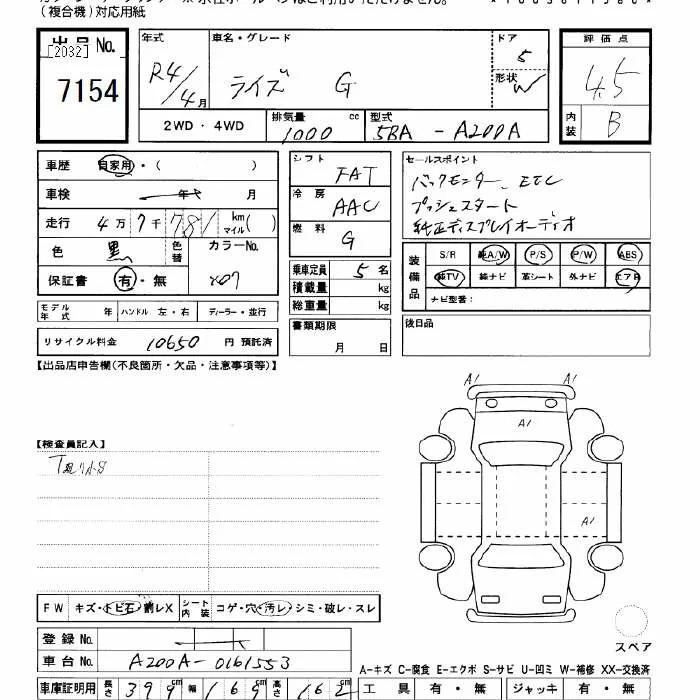 (複合機)対応用紙
出品 No.
[2032]
7154
年式 車名・グレード ドア 5
R4/4月 ライズ G 形状 W
2WD・4WD 排気量 1000 cc 型式 5BA - A200A
評価点
4.5
内装 B
車歴 自家用・( )
車検 年 月
走行 4万7千781 km マイル( )
色 黒 色替 カラーNo.
保証書 有・無 X07
モデル年式 年 ハンドル 左・右 ディーラー・並行
リサイクル料金 10650 円 預託済
シフト FAT
冷房 AAC
燃料 G
乗車定員 5 名
積載量 kg
総重量 kg
書類期限
月 日
セールスポイント
バックモニター、ETC
プッシュスタート
純正ディスプレイオーディオ
装備品 S/R 純A/W P/S P/W ABS
純TV 純ナビ 革シート 外ナビ エアB
ナビ型番:
後日品
【出品店申告欄(不良箇所・欠品・注意事項等)】
【検査員記入】
A1 A1
A1
A1
スペア
FW キズ・トビ石・割レX シート内装 コゲ・穴・汚レ・シミ・破レ・スレ
登録 No.
車台 No. A200A-0161553
車庫証明用 長さ 399 cm 幅 169 cm 高さ 162 cm
A-キズ C-腐食 E-エクボ S-サビ U-凹ミ W-補修 XX-交換済
工具 有・無 ジャッキ 有・無